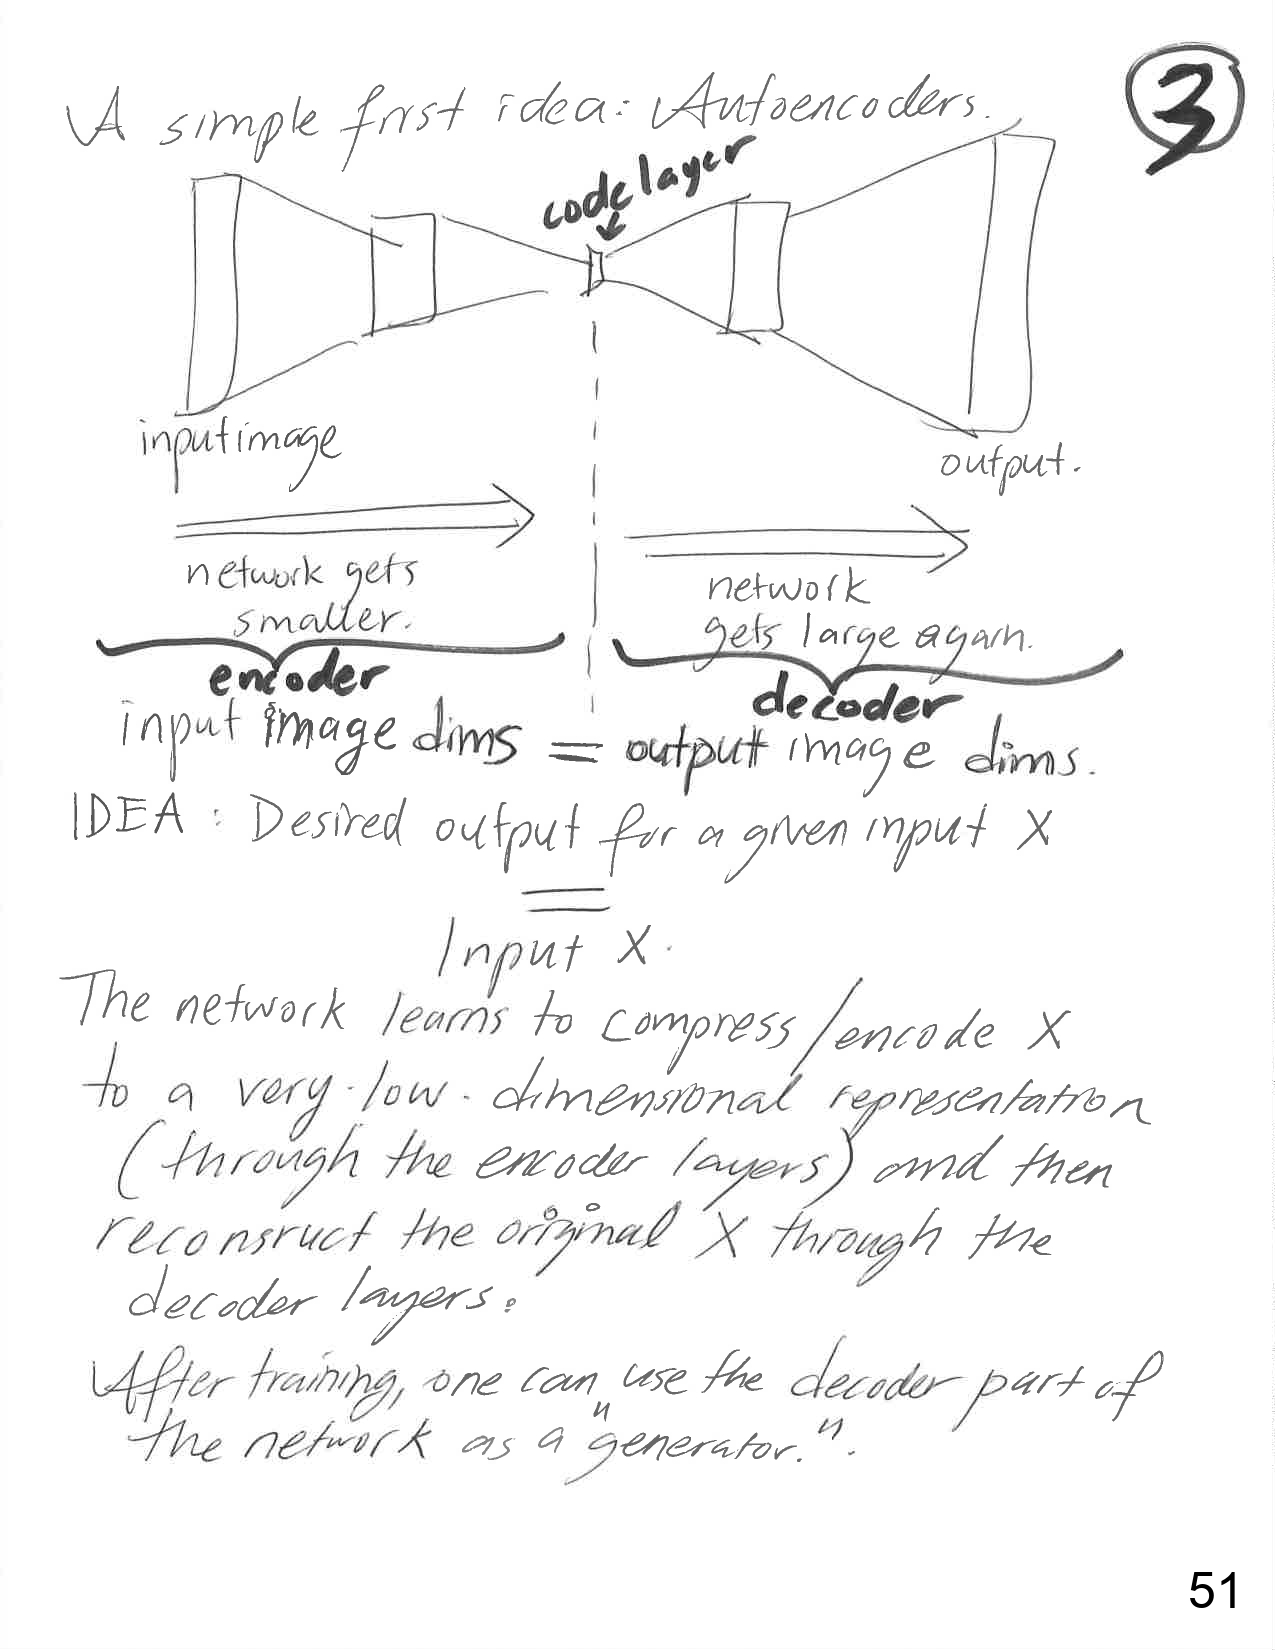 A simple first idea: Autoencoders.
3
code layer
input image
output.
network gets
smaller.
network
gets large again.
encoder
decoder
input image dims = output image dims.
IDEA : Desired output for a given input X
=
Input X.
The network learns to compress/encode X
to a very-low-dimensional representation
(through the encoder layers) and then
reconsruct the original X through the
decoder layers.
After training, one can use the decoder part of
the network as a "generator.".
51